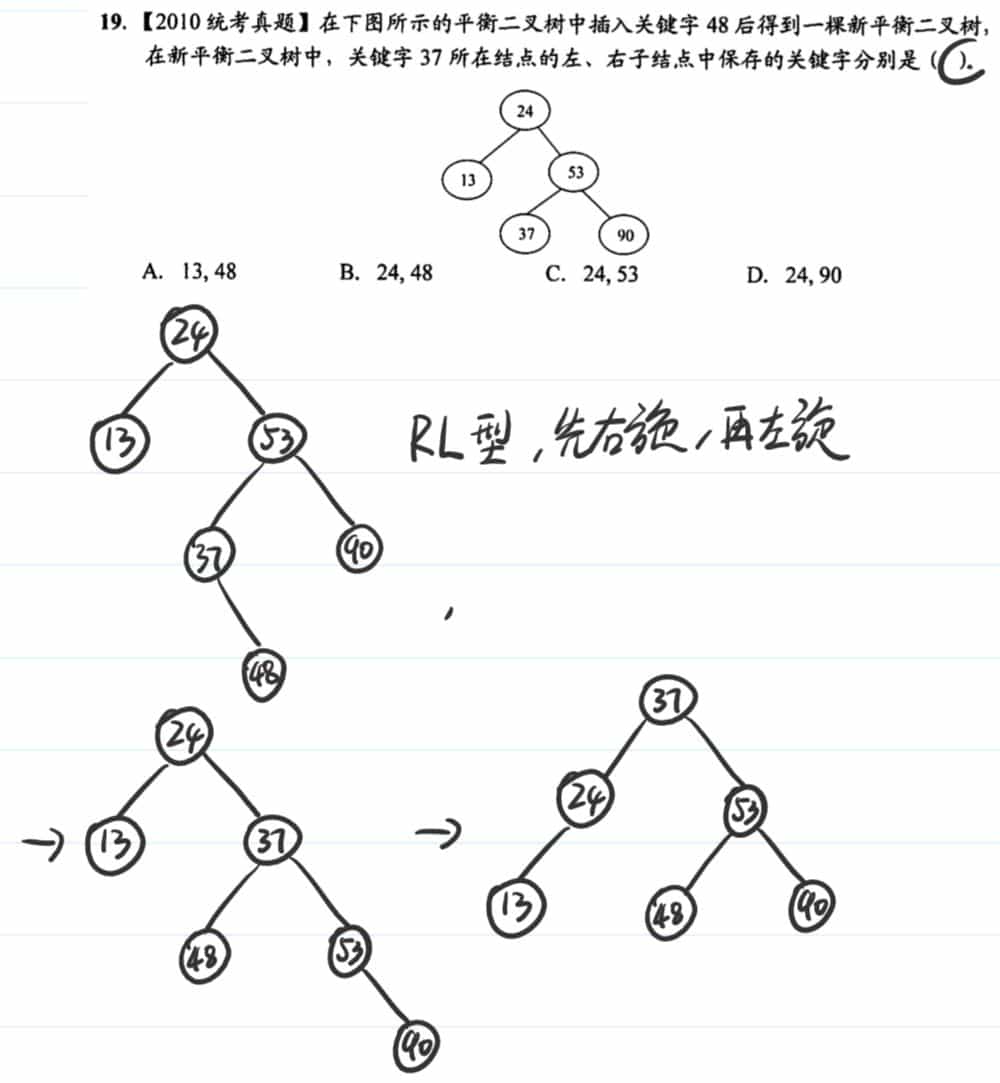 19.【2010 统考真题】在下图所示的平衡二叉树中插入关键字 48 后得到一棵新平衡二叉树,
在新平衡二叉树中，关键字 37 所在结点的左、右子结点中保存的关键字分别是 ( C ).
24
13 53
37 90
A. 13, 48 B. 24, 48 C. 24, 53 D. 24, 90
24
13 53
RL型，先右旋，再左旋
37 90
48
24
13 37
48 53
90
37
24 53
13 48 90